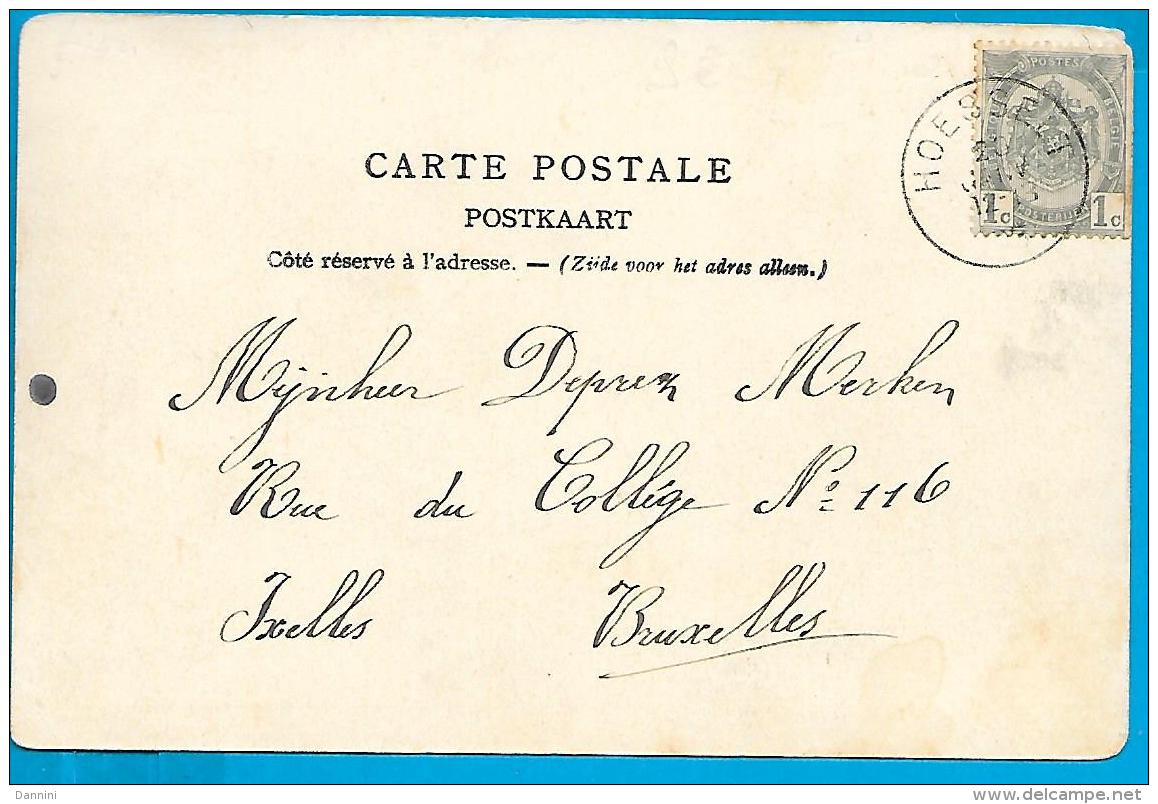 POSTES BELGIQUE
POSTERIJEN
1c 1c
HOESSELT
CARTE POSTALE
POSTKAART
Côté réservé à l'adresse. — (Zijde voor het adres alleen.)
Mijnheer Deprez Merken
Rue du Collége No 116
Ixelles Bruxelles
Dannini
delcampe.net